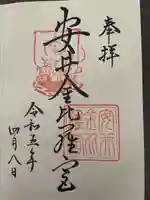 奉拝
安井金比羅宮
令和五年
四月八日